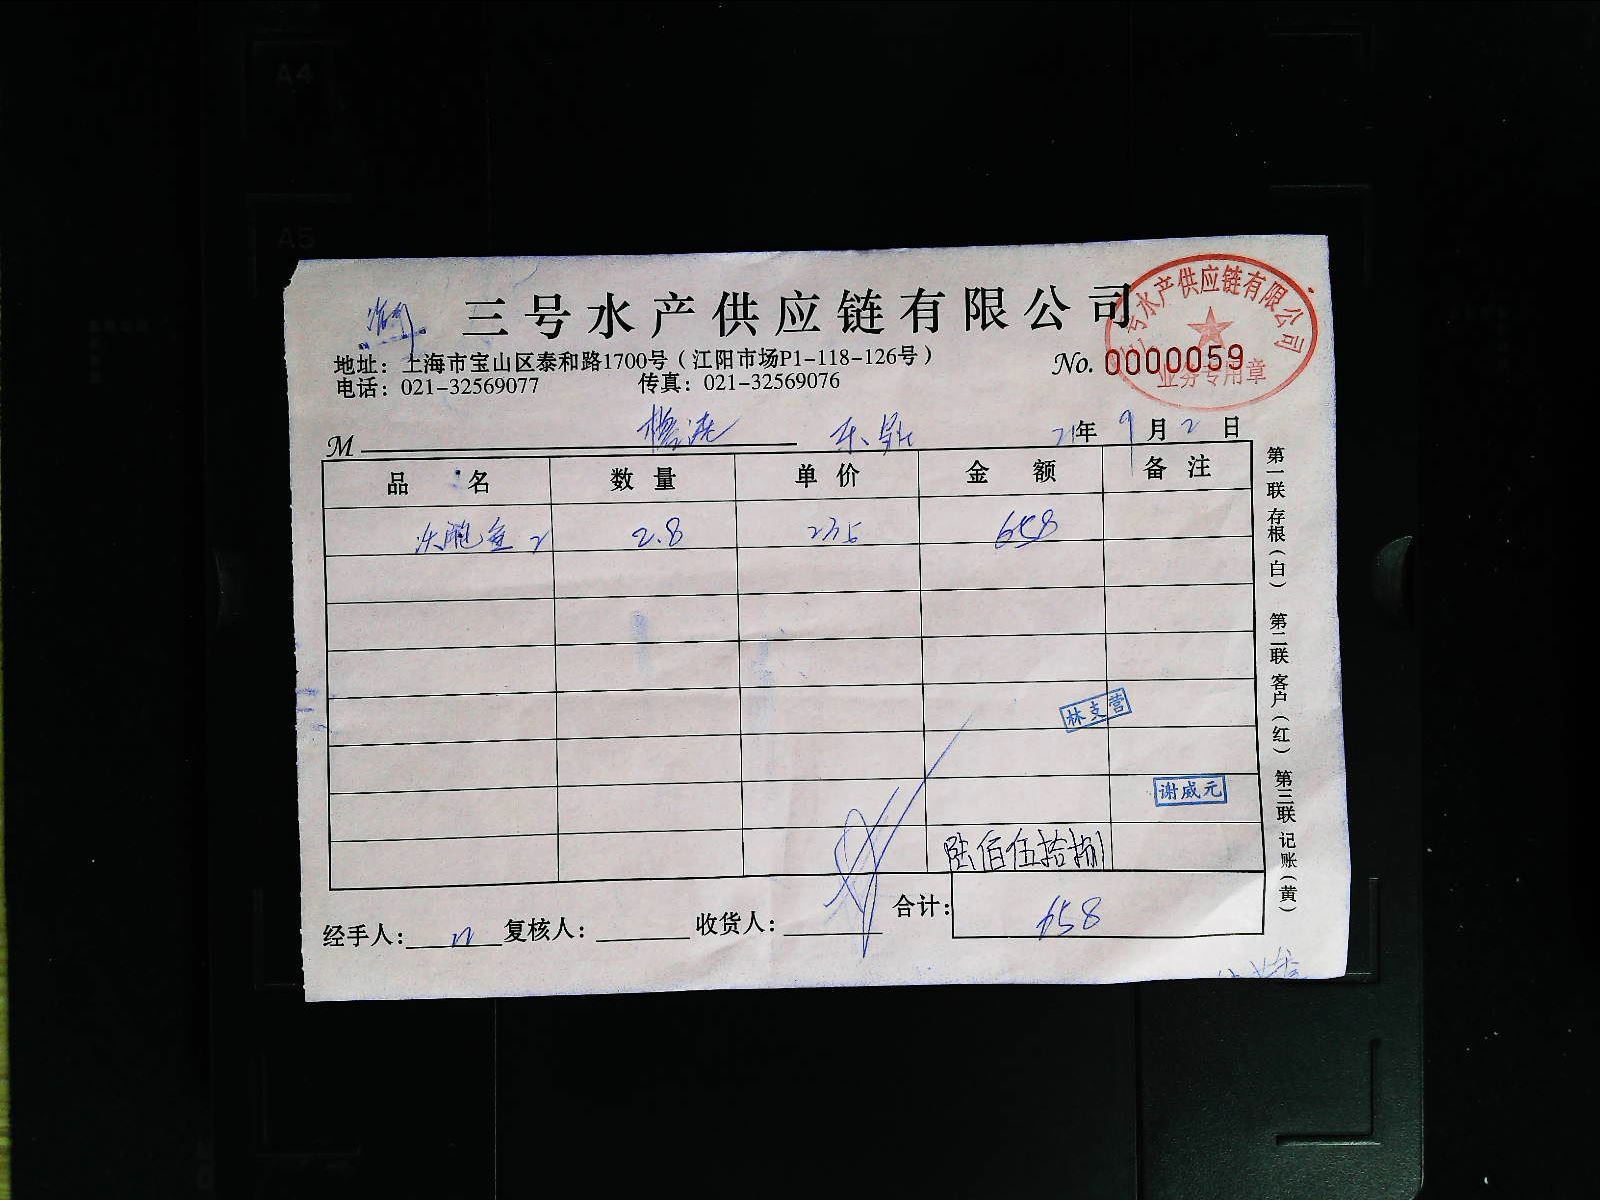 A4
A5
三号水产供应链有限公司
三号水产供应链有限公司
业务专用章
地址：上海市宝山区泰和路1700号（江阳市场P1-118-126号）
No. 0000059
电话：021-32569077 传真：021-32569076
M
21年 9月 2日
品名 数量 单价 金额 备注
2.8 235 658
林支营
谢威元
陆佰伍拾捌
合计： 658
经手人： 复核人： 收货人：
第一联 存根（白） 第二联 客户（红） 第三联 记账（黄）